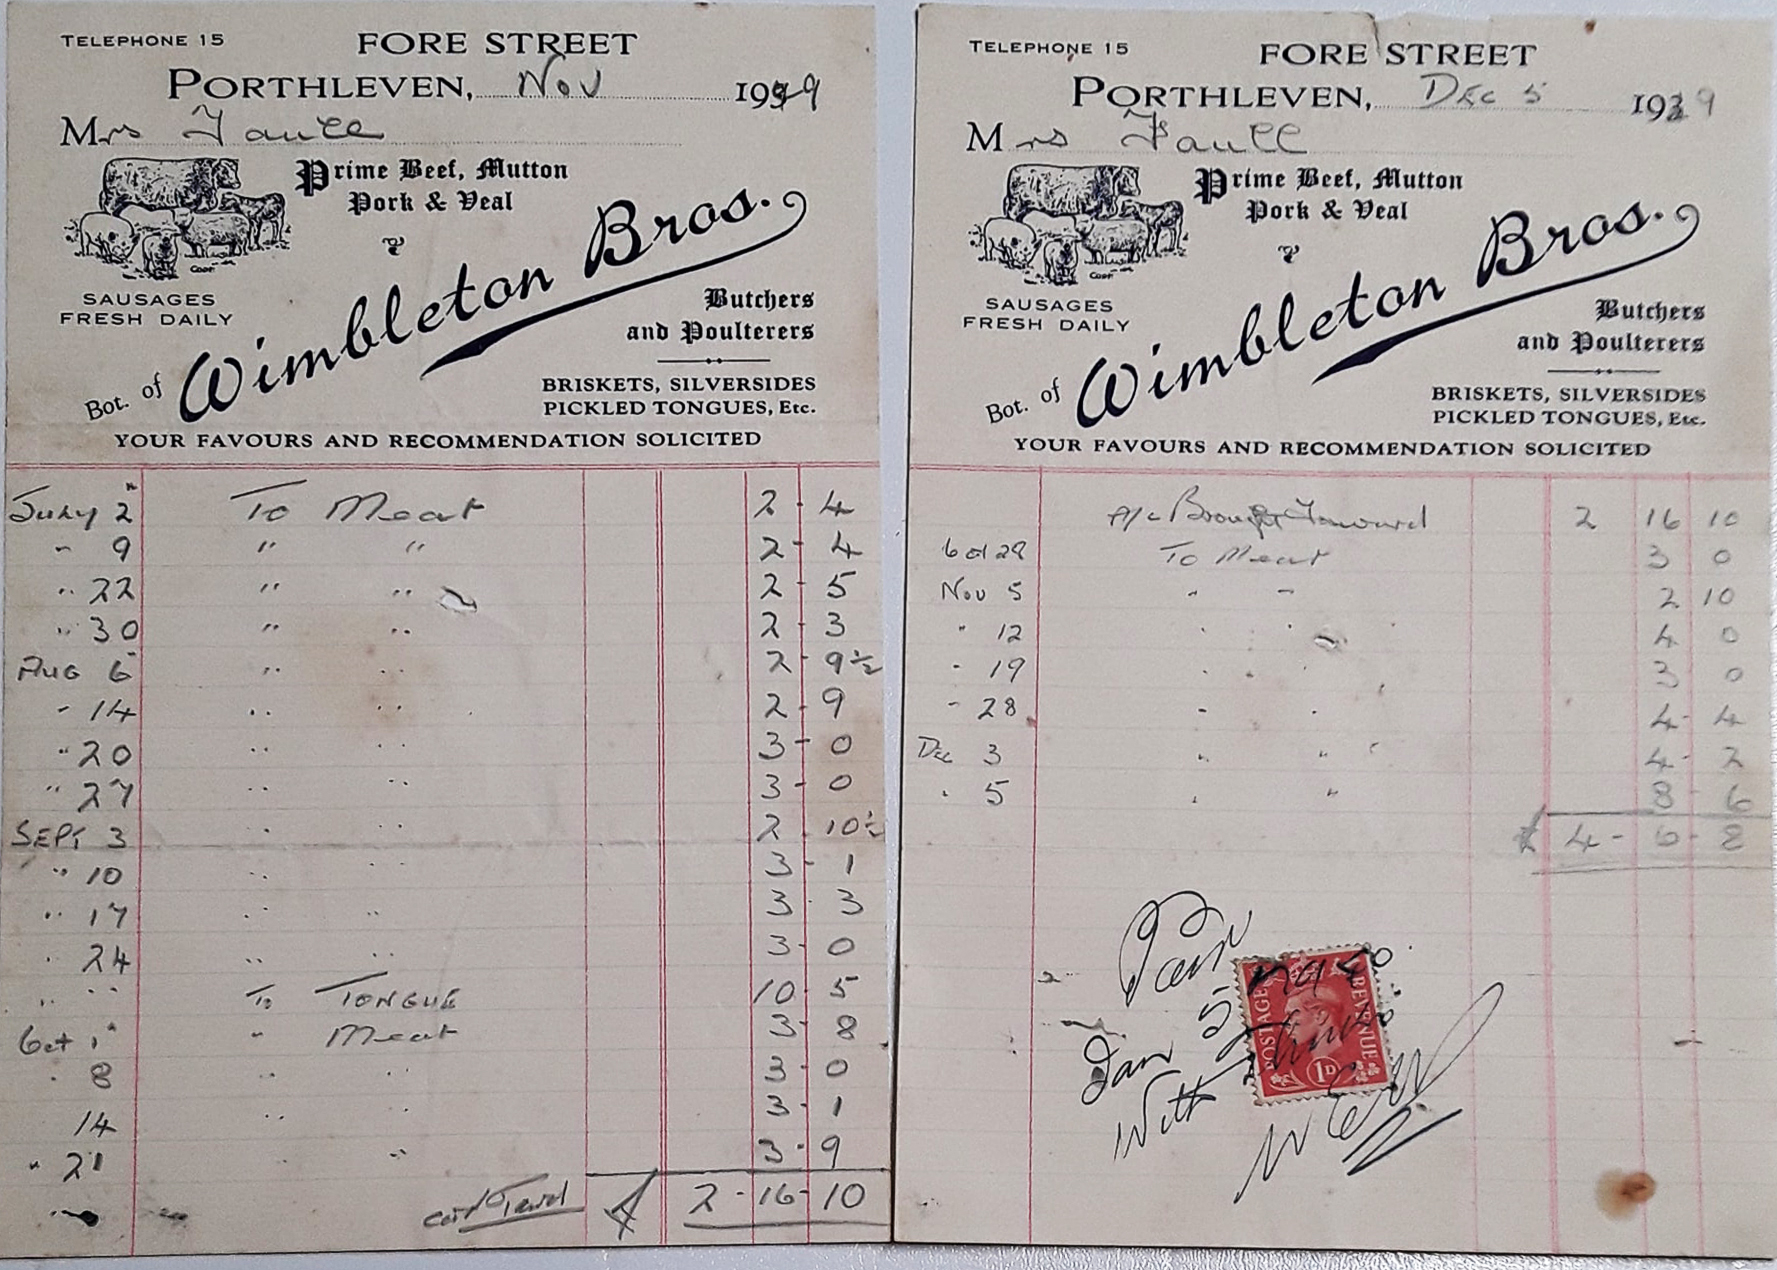 TELEPHONE 15 FORE STREET
PORTHLEVEN, Nov 1949
Mrs Faull
Prime Beef, Mutton
Pork & Veal
SAUSAGES
FRESH DAILY
Bot. of Wimbleton Bros.
Butchers
and Poulterers
BRISKETS, SILVERSIDES
PICKLED TONGUES, Etc.
YOUR FAVOURS AND RECOMMENDATION SOLICITED
July 2 To Meat 2 - 4
" 9 " " 2 - 4
" 22 " " 2 - 5
" 30 " " 2 - 3
Aug 6 " " 2 - 9½
" 14 " " 2 - 9
" 20 " " 3 - 0
" 27 " " 3 - 0
SEPT 3 " " 2 - 10½
" 10 " " 3 - 1
" 17 " " 3 - 3
" 24 " " 3 - 0
" " To TONGUE 10 - 5
Oct 1 " Meat 3 - 8
" 8 " " 3 - 0
14 " " 3 - 1
" 21 " " 3 - 9
£ 2 - 16 - 10
TELEPHONE 15 FORE STREET
PORTHLEVEN, DEC 5 1949
Mrs Faull
Prime Beef, Mutton
Pork & Veal
SAUSAGES
FRESH DAILY
Bot. of Wimbleton Bros.
Butchers
and Poulterers
BRISKETS, SILVERSIDES
PICKLED TONGUES, Etc.
YOUR FAVOURS AND RECOMMENDATION SOLICITED
A/c Brought Forward 2 16 10
Oct 28 To Meat 3 0
Nov 5 " " 2 10
" 12 " " 4 0
" 19 " " 3 0
" 28 " " 4 - 4
Dec 3 " " 4 - 2
" 5 " " 8 - 6
£ 4 - 6 - 8
POSTAGE REVENUE
1D
With